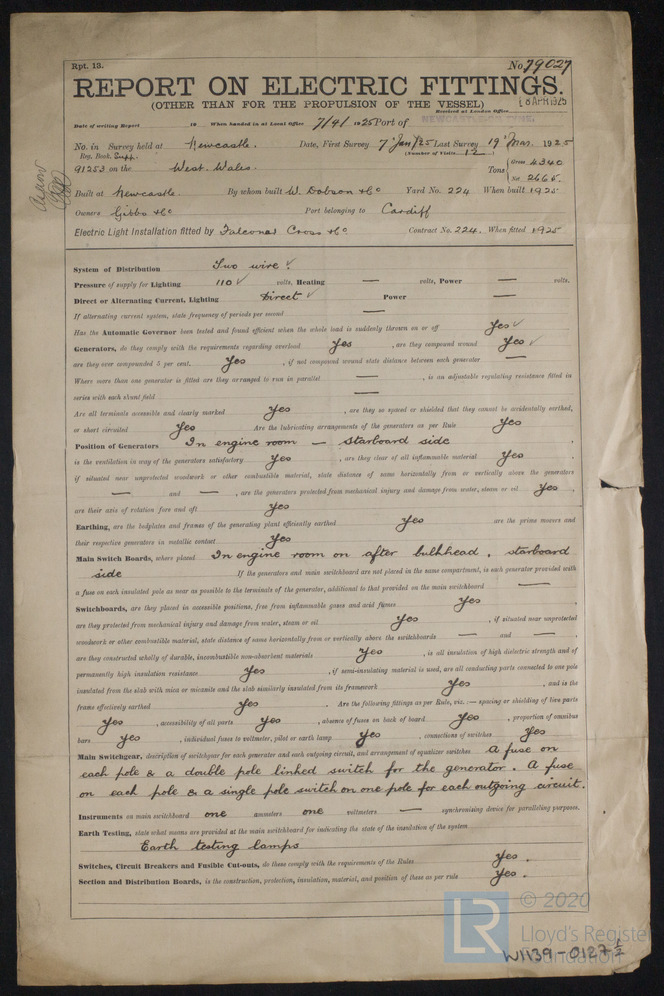 Rpt. 13.
No. 79027
REPORT ON ELECTRIC FITTINGS.
(OTHER THAN FOR THE PROPULSION OF THE VESSEL)
Received at London Office
8 APR 1925
Date of writing Report 19 When handed in at Local Office 7/4/1925 Port of NEWCASTLE-ON-TYNE.
No. in Survey held at Newcastle. Date, First Survey 7 Jan/25 Last Survey 19 Mar. 1925
Reg. Book. Supp. (Number of Visits 12)
91253 on the West Wales. Tons { Gross 4340
Net 2665.
Built at Newcastle. By whom built W. Dobson & Co Yard No. 224 When built 1925
Owners Gibbs & Co Port belonging to Cardiff
Electric Light Installation fitted by Falconer Cross & Co Contract No. 224. When fitted 1925
System of Distribution Two wire. ✓
Pressure of supply for Lighting 110 ✓ volts, Heating — volts, Power — volts.
Direct or Alternating Current, Lighting Direct ✓ Power —
If alternating current system, state frequency of periods per second —
Has the Automatic Governor been tested and found efficient when the whole load is suddenly thrown on or off Yes ✓
Generators, do they comply with the requirements regarding overload Yes , are they compound wound Yes ✓
are they over compounded 5 per cent. Yes , if not compound wound state distance between each generator —
Where more than one generator is fitted are they arranged to run in parallel — , is an adjustable regulating resistance fitted in
series with each shunt field —
Are all terminals accessible and clearly marked Yes , are they so spaced or shielded that they cannot be accidentally earthed,
or short circuited Yes Are the lubricating arrangements of the generators as per Rule Yes
Position of Generators In engine room — starboard side .
is the ventilation in way of the generators satisfactory Yes , are they clear of all inflammable material Yes ,
if situated near unprotected woodwork or other combustible material, state distance of same horizontally from or vertically above the generators
— and — , are the generators protected from mechanical injury and damage from water, steam or oil Yes ,
are their axis of rotation fore and aft Yes
Earthing, are the bedplates and frames of the generating plant efficiently earthed Yes are the prime movers and
their respective generators in metallic contact Yes
Main Switch Boards, where placed In engine room on after bulkhead, starboard
side If the generators and main switchboard are not placed in the same compartment, is each generator provided with
a fuse on each insulated pole as near as possible to the terminals of the generator, additional to that provided on the main switchboard —
Switchboards, are they placed in accessible positions, free from inflammable gases and acid fumes Yes ,
are they protected from mechanical injury and damage from water, steam or oil Yes , if situated near unprotected
woodwork or other combustible material, state distance of same horizontally from or vertically above the switchboards — and — ,
are they constructed wholly of durable, incombustible non-absorbent materials Yes , is all insulation of high dielectric strength and of
permanently high insulation resistance Yes , if semi-insulating material is used, are all conducting parts connected to one pole
insulated from the slab with mica or micanite and the slab similarly insulated from its framework Yes , and is the
frame effectively earthed Yes . Are the following fittings as per Rule, viz.:— spacing or shielding of live parts
Yes , accessibility of all parts Yes , absence of fuses on back of board Yes , proportion of omnibus
bars Yes , individual fuses to voltmeter, pilot or earth lamp Yes , connections of switches Yes
Main Switchgear, description of switchgear for each generator and each outgoing circuit, and arrangement of equalizer switches A fuse on
each pole & a double pole linked switch for the generator. A fuse
on each pole & a single pole switch on one pole for each outgoing circuit.
Instruments on main switchboard one ammeters one voltmeters — synchronising device for paralleling purposes.
Earth Testing, state what means are provided at the main switchboard for indicating the state of the insulation of the system
Earth testing lamps
Switches, Circuit Breakers and Fusible Cut-outs, do these comply with the requirements of the Rules Yes .
Section and Distribution Boards, is the construction, protection, insulation, material, and position of these as per rule Yes .
© 2020
LR
Lloyd's Register
Foundation
W1139-0127 ½